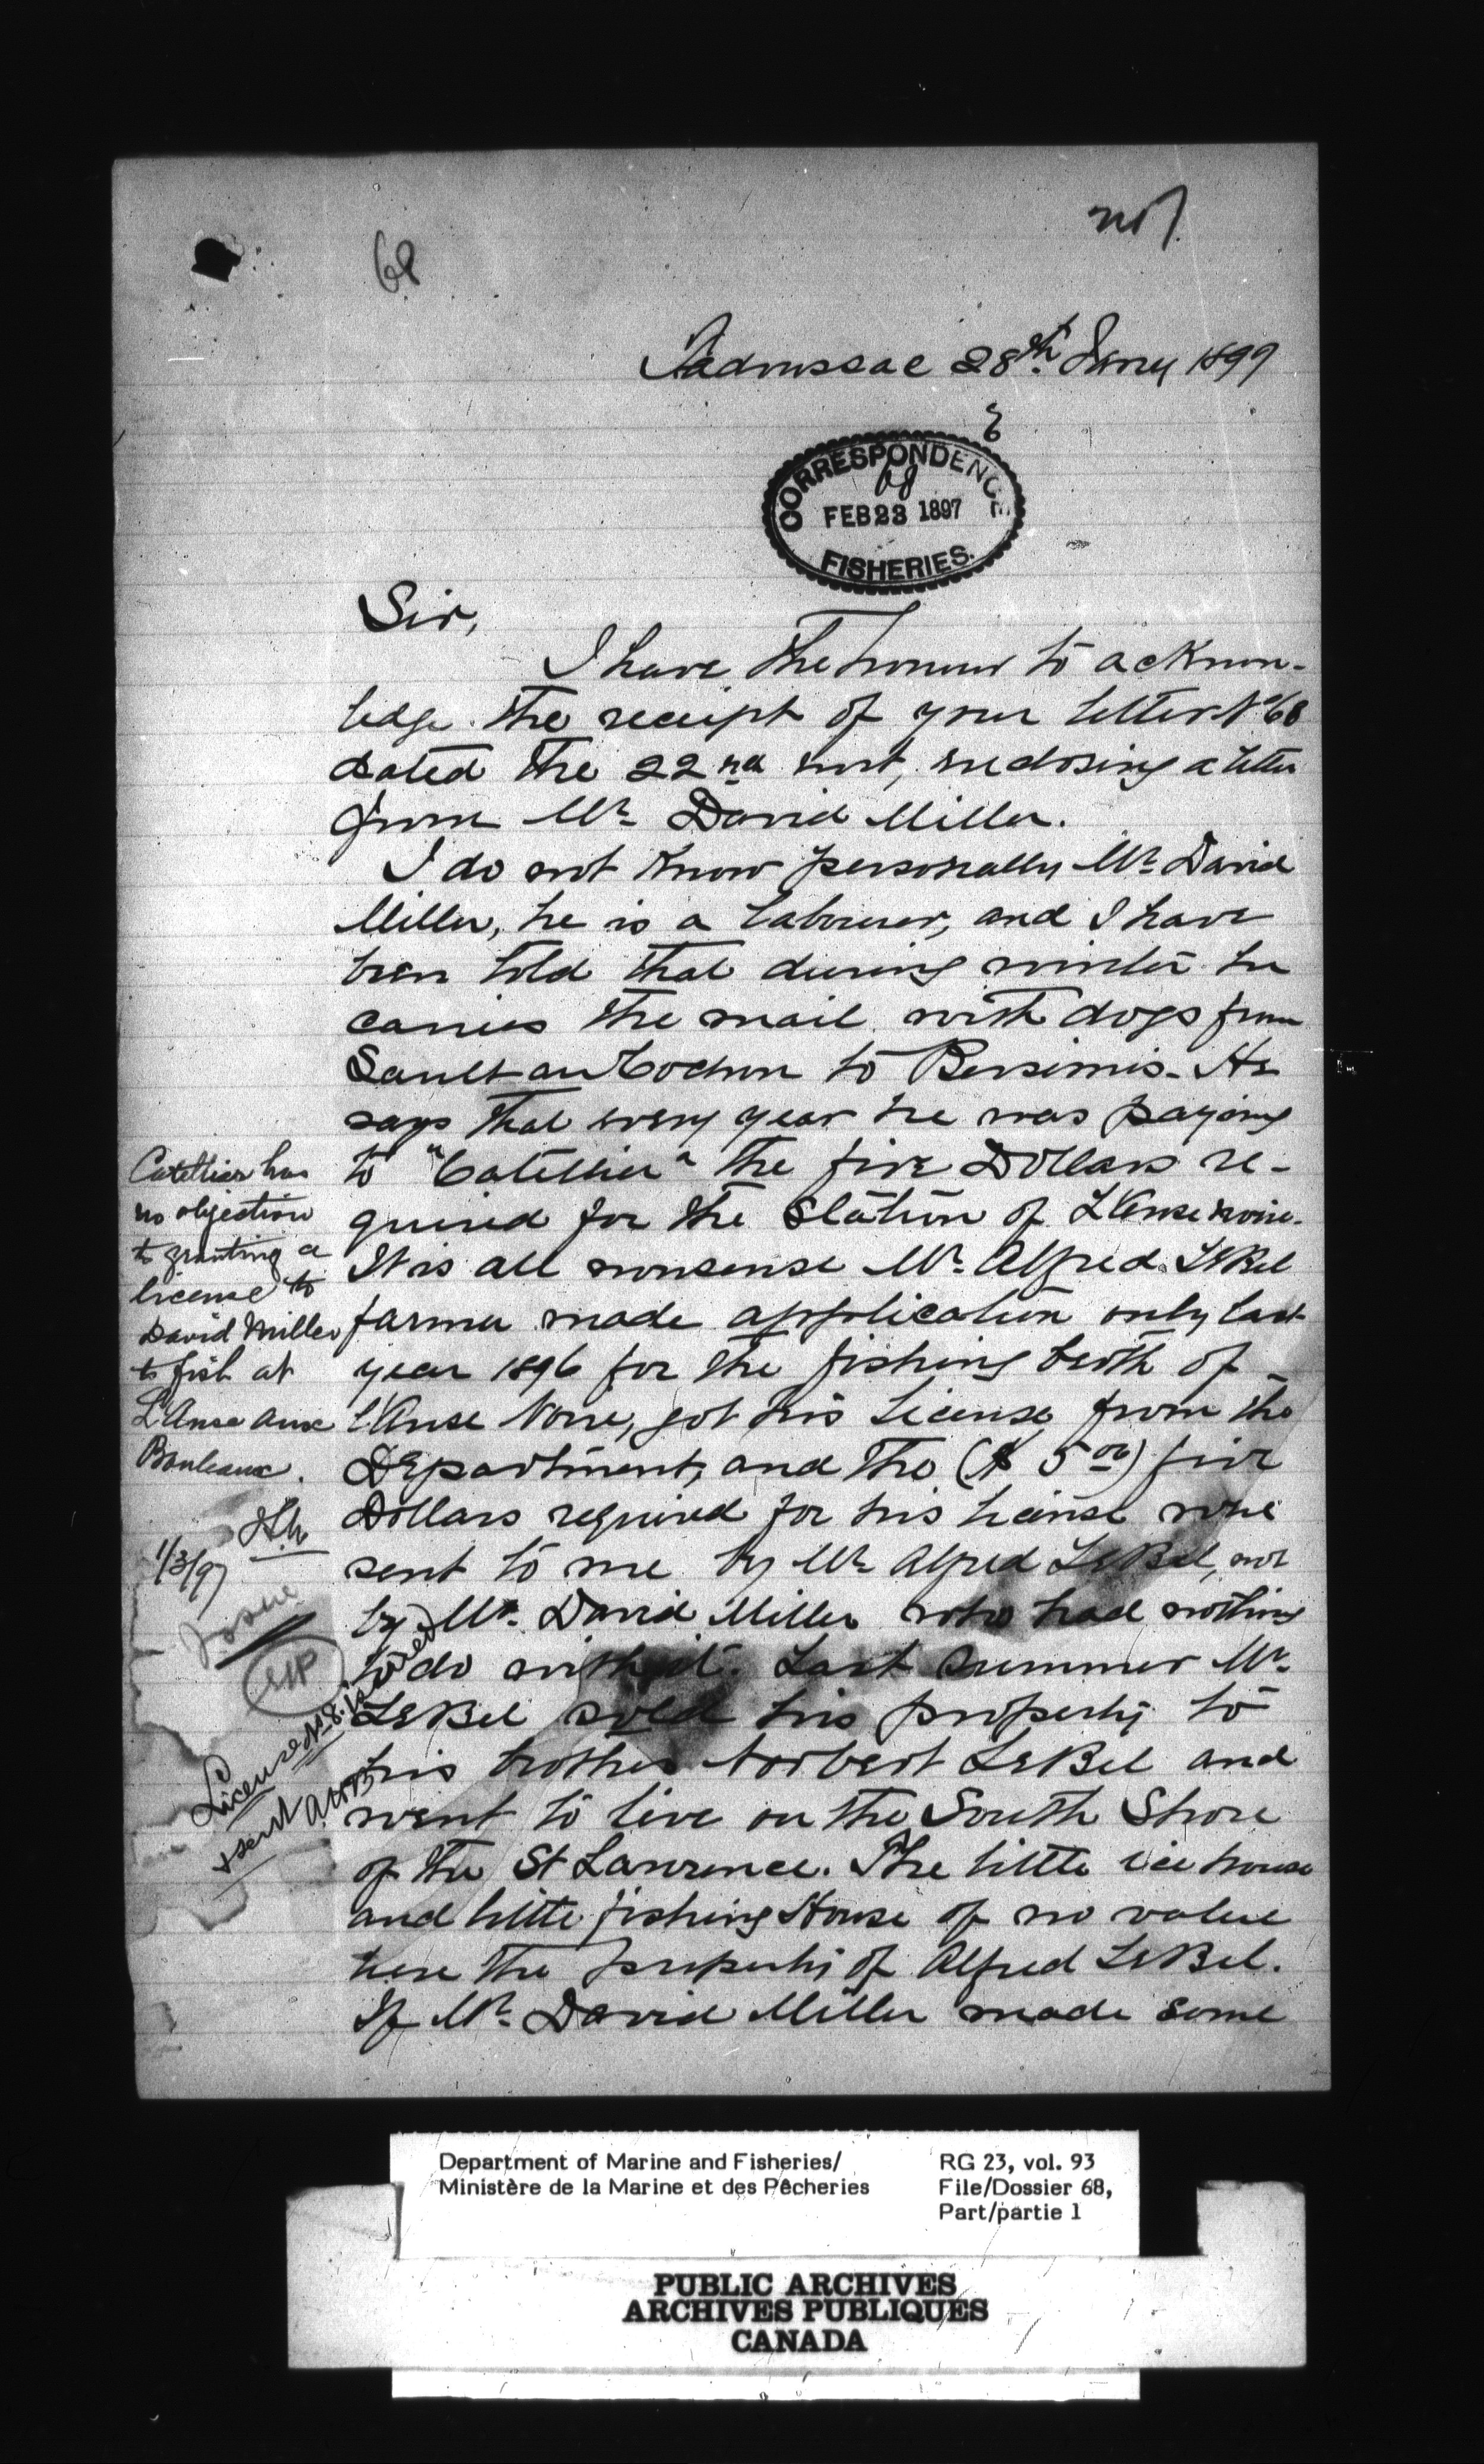 68
Tadoussac 28th Janry 1897
CORRESPONDENCE
68
FEB 23 1897
FISHERIES.
Sir,
I have the honour to acknow-
ledge the receipt of your letter No 68
dated the 22nd inst, enclosing a letter
from Mr David Miller.
I do not know personally Mr David
Miller, he is a labourer, and I have
been told that during winter he
carries the mail with dogs from
Sault au Cochon to Bersimis. He
says that every year he was paying
to "Catellier" the five Dollars re-
quired for the Station of L'Anse noire.
It is all nonsense Mr Alfred LeBel
farmer made application only last
year 1896 for the fishing berth of
l'Anse Noire, got his License from the
Department, and the ($ 5 00) five
Dollars required for his License were
sent to me by Mr Alfred LeBel, not
by Mr. David Miller who had nothing
to do with it. Last summer Mr
LeBel sold his property to
his brother Norbert LeBel and
went to live on the South Shore
of the St Lawrence. The little ice house
and little fishing House of no value
here the property of Alfred LeBel.
If Mr David Miller made some
Catellier has
no objection
to granting a
license to
David Miller
to fish at
L'Anse aux
Bouleaux.
1/3/97
License No 8. issued
& sent
Department of Marine and Fisheries/
Ministère de la Marine et des Pêcheries
RG 23, vol. 93
File/Dossier 68,
Part/partie 1
PUBLIC ARCHIVES
ARCHIVES PUBLIQUES
CANADA